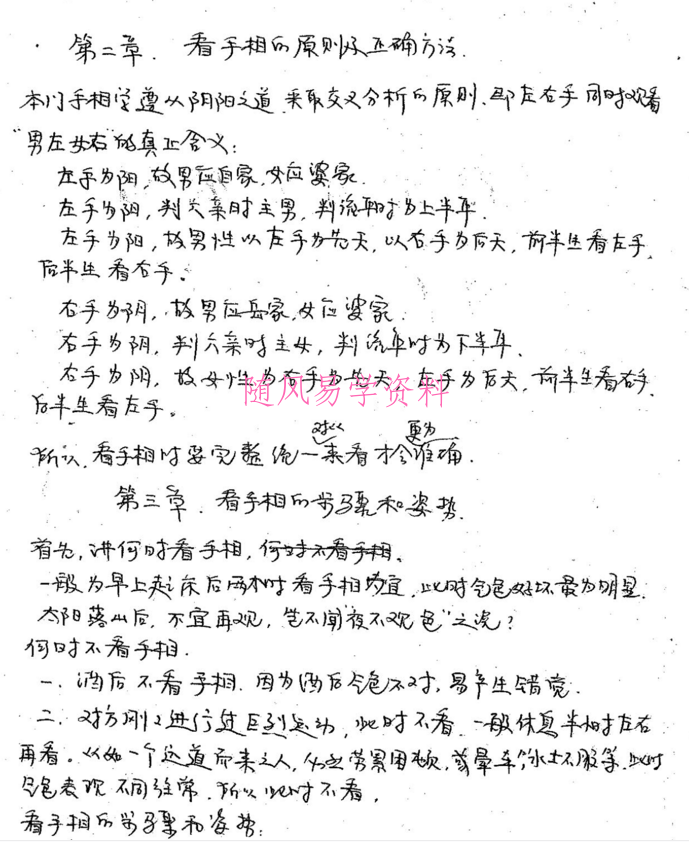 第二章. 看手相的原则及正确方法.
本门手相学遵从阴阳之道,采取交叉分析的原则.即左右手同时观看
“男左女右”的真正含义:
左手为阳,故男应自家,女应婆家.
左手为阳,判六亲时主男,判流年时为上半年.
左手为阳,故男性以左手为先天,以右手为后天,前半生看左手,
后半生看右手.
右手为阴,故男应岳家,女应婆家.
右手为阴,判六亲时主女,判流年时为下半年.
右手为阴,故女性为右手为先天,左手为后天,前半生看右手,
后半生看左手.
随风易学资料
对以 更为
所以,看手相时要完整统一来看才会准确.
第三章. 看手相的步骤和姿势.
首先,讲何时看手相,何时不看手相.
一般为早上起床后两小时看手相为宜,此时气色好坏最为明显.
太阳落山后,不宜再观,岂不闻“夜不观色”之说?
何时不看手相.
一.酒后不看手相.因为酒后气色不对,易产生错觉.
二.对方刚刚进行过巨烈运动,此时不看.一般休息半小时左右
再看.比如一个远道而来之人,劳累困顿,或晕车,水土不服等.此时
气色表现不同往常.所以此时不看.
看手相的步骤和姿势: